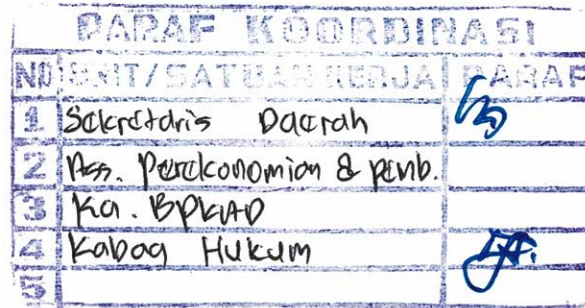 PARAF KOORDINASI
NO UNIT/SATUAN KERJA PARAF
1 Sekretaris Daerah
2 Ass. Perekonomian & pemb.
3 Ka. BPKAD
4 Kabag Hukum
5